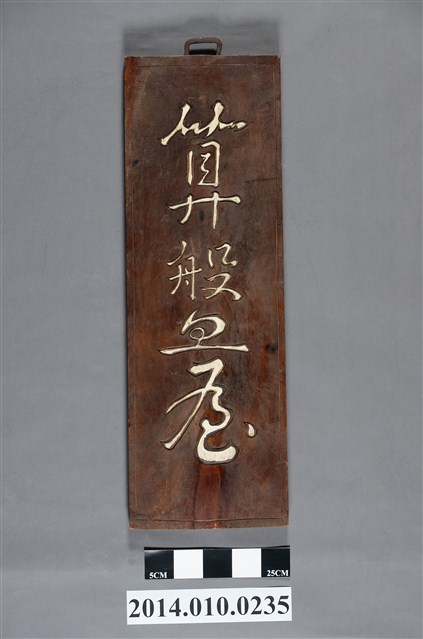 算盤屋
5CM 25CM
2014.010.0235